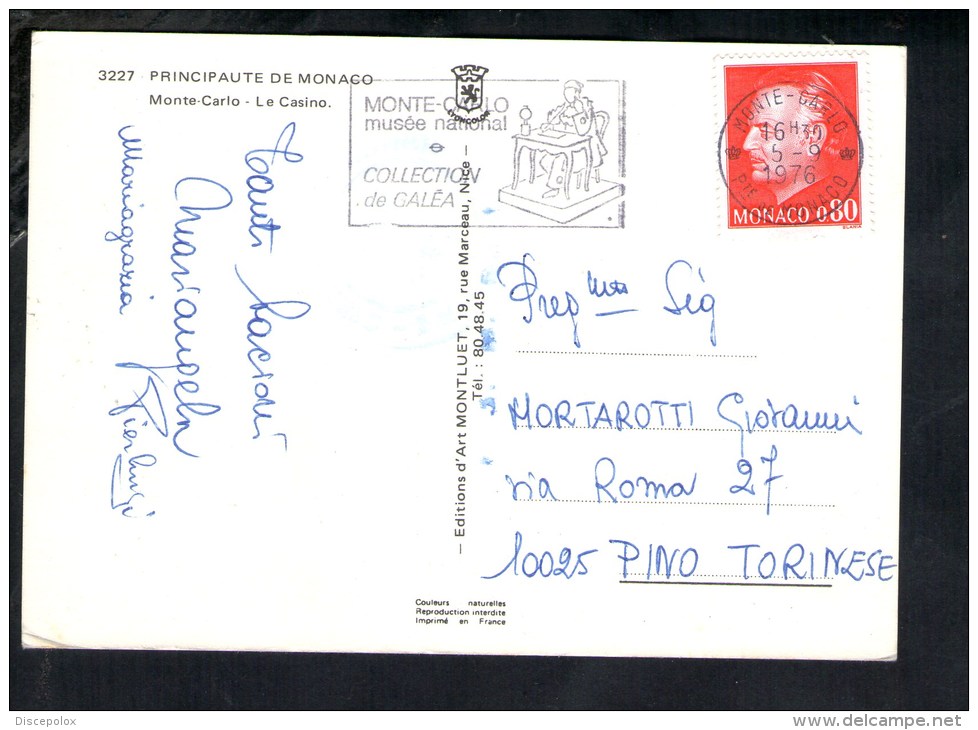 3227 PRINCIPAUTE DE MONACO
Monte-Carlo - Le Casino.
MONTE-CARLO
musée national
COLLECTION
de GALÉA
LYONCOLOR
MONTE-CARLO
16H30
5-9
1976
PTE DE MONACO
MONACO 0,80
Tanti bacioni
Mariangela
Mariagrazia
Pierluigi
— Editions d'Art MONTLUET, 19, rue Marceau, Nice —
Tél. : 80.48.45
Preg Sig
MORTAROTTI Giovanni
via Roma 27
10025 PINO TORINESE
Couleurs naturelles
Reproduction interdite
Imprimé en France
Discepolox
delcampe.net